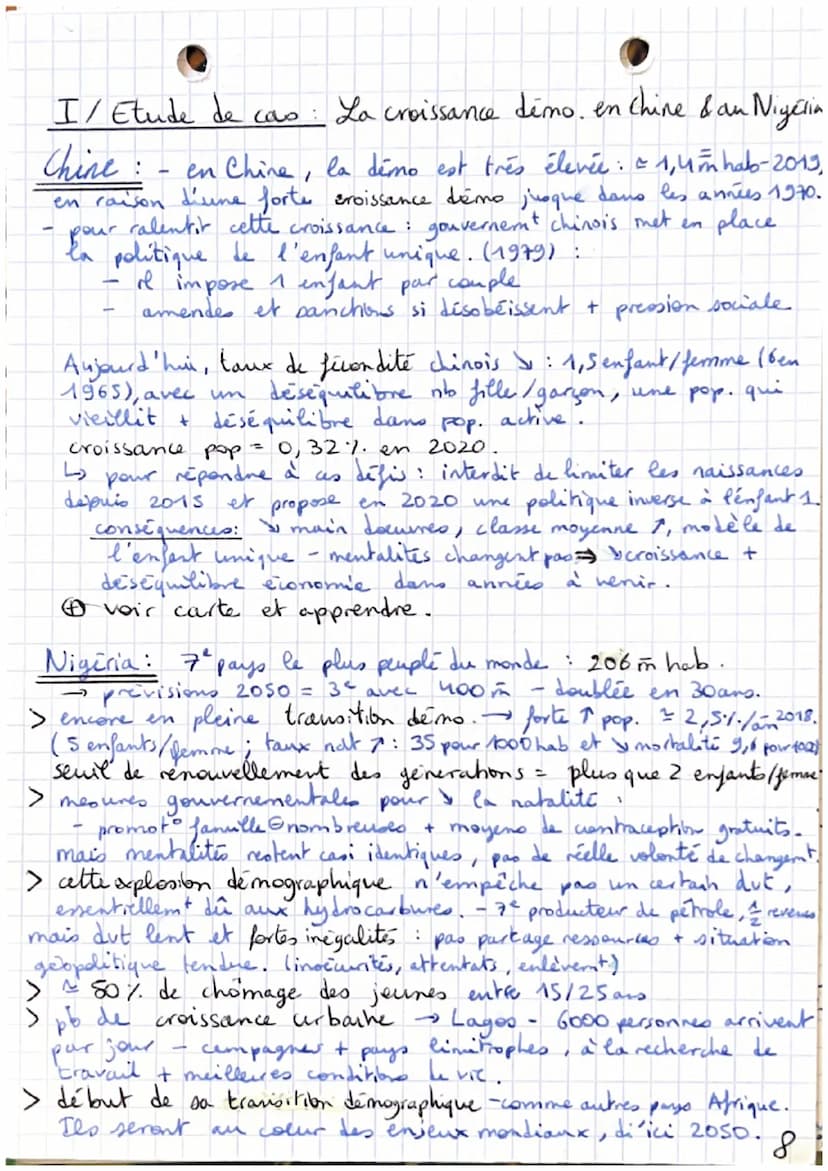 I/ Etude de cas : La croissance démo. en Chine & au Nigéria
Chine : - en Chine, la démo est très élevée : ≃ 1,4 m̅ hab-2019,
en raison d'une forte croissance démo jusque dans les années 1970.
- pour ralentir cette croissance : gouvernemt chinois met en place
la politique de l'enfant unique. (1979) :
- il impose 1 enfant par couple
- amendes et sanctions si désobéissent + pression sociale
Aujourd'hui, taux de fécondité chinois ↘ : 1,5 enfant/femme (6 en
1965), avec un déséquilibre nb fille/garçon, une pop. qui
vieillit + déséquilibre dans pop. active.
croissance pop = 0,32%. en 2020.
↳ pour répondre à ces défis : interdit de limiter les naissances
depuis 2015 et propose en 2020 une politique inverse à l'enfant 1.
conséquences: ↘ main d'œuvres, classe moyenne ↗, modèle de
l'enfant unique - mentalités changent pas ⇒ ↘ croissance +
déséquilibre économie dans années à venir.
⊕ voir carte et apprendre.
Nigéria : 7e pays le plus peuplé du monde : 206 m̅ hab.
→ prévisions 2050 = 3e avec 400 m̅ - doublée en 30 ans.
> encore en pleine transition démo. → forte ↑ pop. ≃ 2,5%/an 2018.
(5 enfants/femme ; taux nat ↗ : 35 pour 1000 hab et ↘ mortalité 9,6 pour 1000)
seuil de renouvellement des générations = plus que 2 enfants/femme
> mesures gouvernementales pour ↘ la natalité :
- promot° famille ⊖ nombreuses + moyens de contraception gratuits.
mais mentalités restent casi identiques, pas de réelle volonté de changemt.
> cette explosion démographique n'empêche pas un certain dvt,
essentiellemt dû aux hydrocarbures. - 7e producteur de pétrole, 1/2 revenus
mais dvt lent et fortes inégalités : pas partage ressources + situation
géopolitique tendue. (insécurités, attentats, enlèvemt)
> ≃ 50%. de chômage des jeunes entre 15/25 ans
> pb de croissance urbaine → Lagos - 6000 personnes arrivent
par jour - campagnes + pays limitrophes, à la recherche de
travail + meilleures conditions de vie.
> début de sa transition démographique - comme autres pays Afrique.
Ils seront au coeur des enjeux mondiaux, d'ici 2050.
8